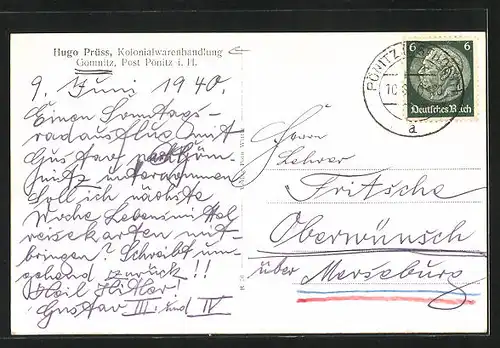 Hugo Prüss, Kolonialwarenhandlung
Gömnitz, Post Pönitz i. H.
9. Juni 1940.
Einen Sonntags-
radausflug mit
Gustav nach Göm-
nitz unternommen.
Soll ich nächste
Woche Lebensmittel
reisekarten mit-
bringen? Schreibt um-
gehend zurück!!
Heil Hitler!
Gustav III. und IV
PÖNITZ
10
a
6 6
Deutsches Reich
Herrn
Lehrer
Fritsche
Oberwünsch
über Merseburg